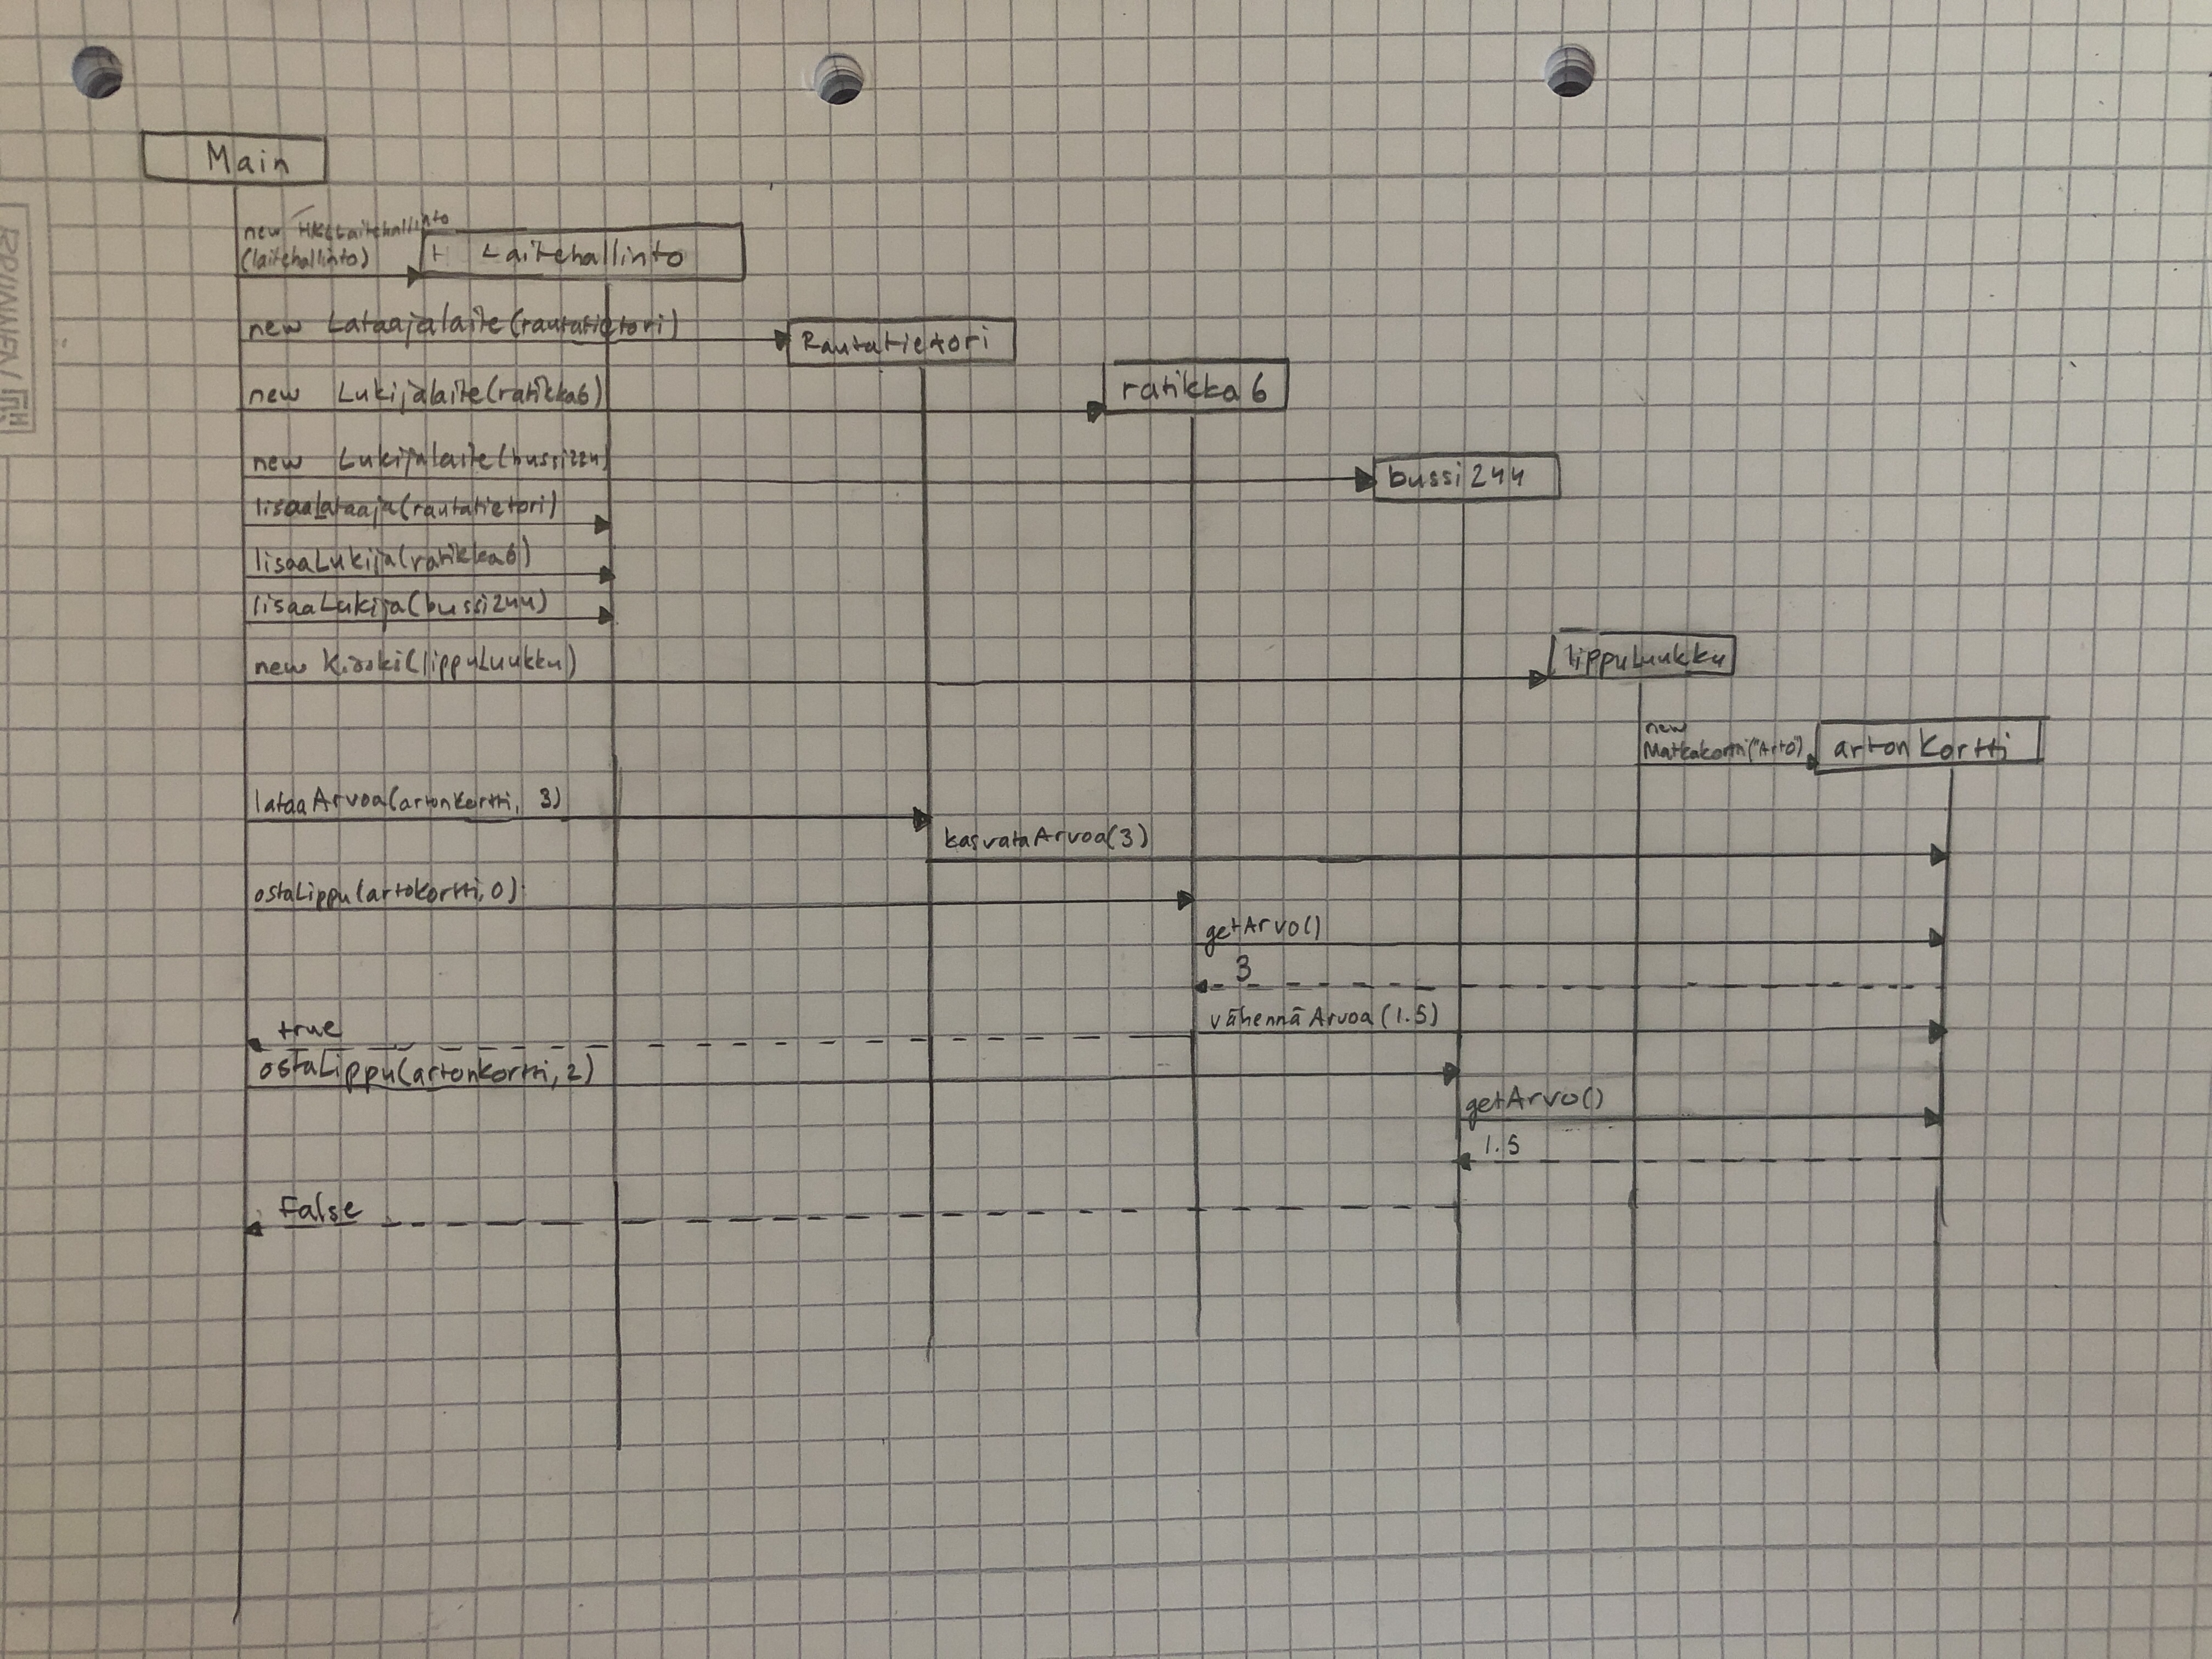 Main
new HKLLaitehallinto
(laitehallinto)
H Laitehallinto
new Lataajalaite(rautatietori)
Rautatietori
new Lukijalaite(ratikka6)
ratikka 6
new Lukijalaite(bussi224)
bussi 244
lisaaLataaja(rautatietori)
lisaaLukija(ratikka6)
lisaaLukija(bussi244)
new Kioski(lippuLuukku)
lippuLuukku
new
Matkakortti("Arto")
artonKortti
lataaArvoa(artonKortti, 3)
kasvataArvoa(3)
ostaLippu(artoKortti, 0)
getArvo()
3
vähennäArvoa(1.5)
true
ostaLippu(artonkortti, 2)
getArvo()
1.5
False